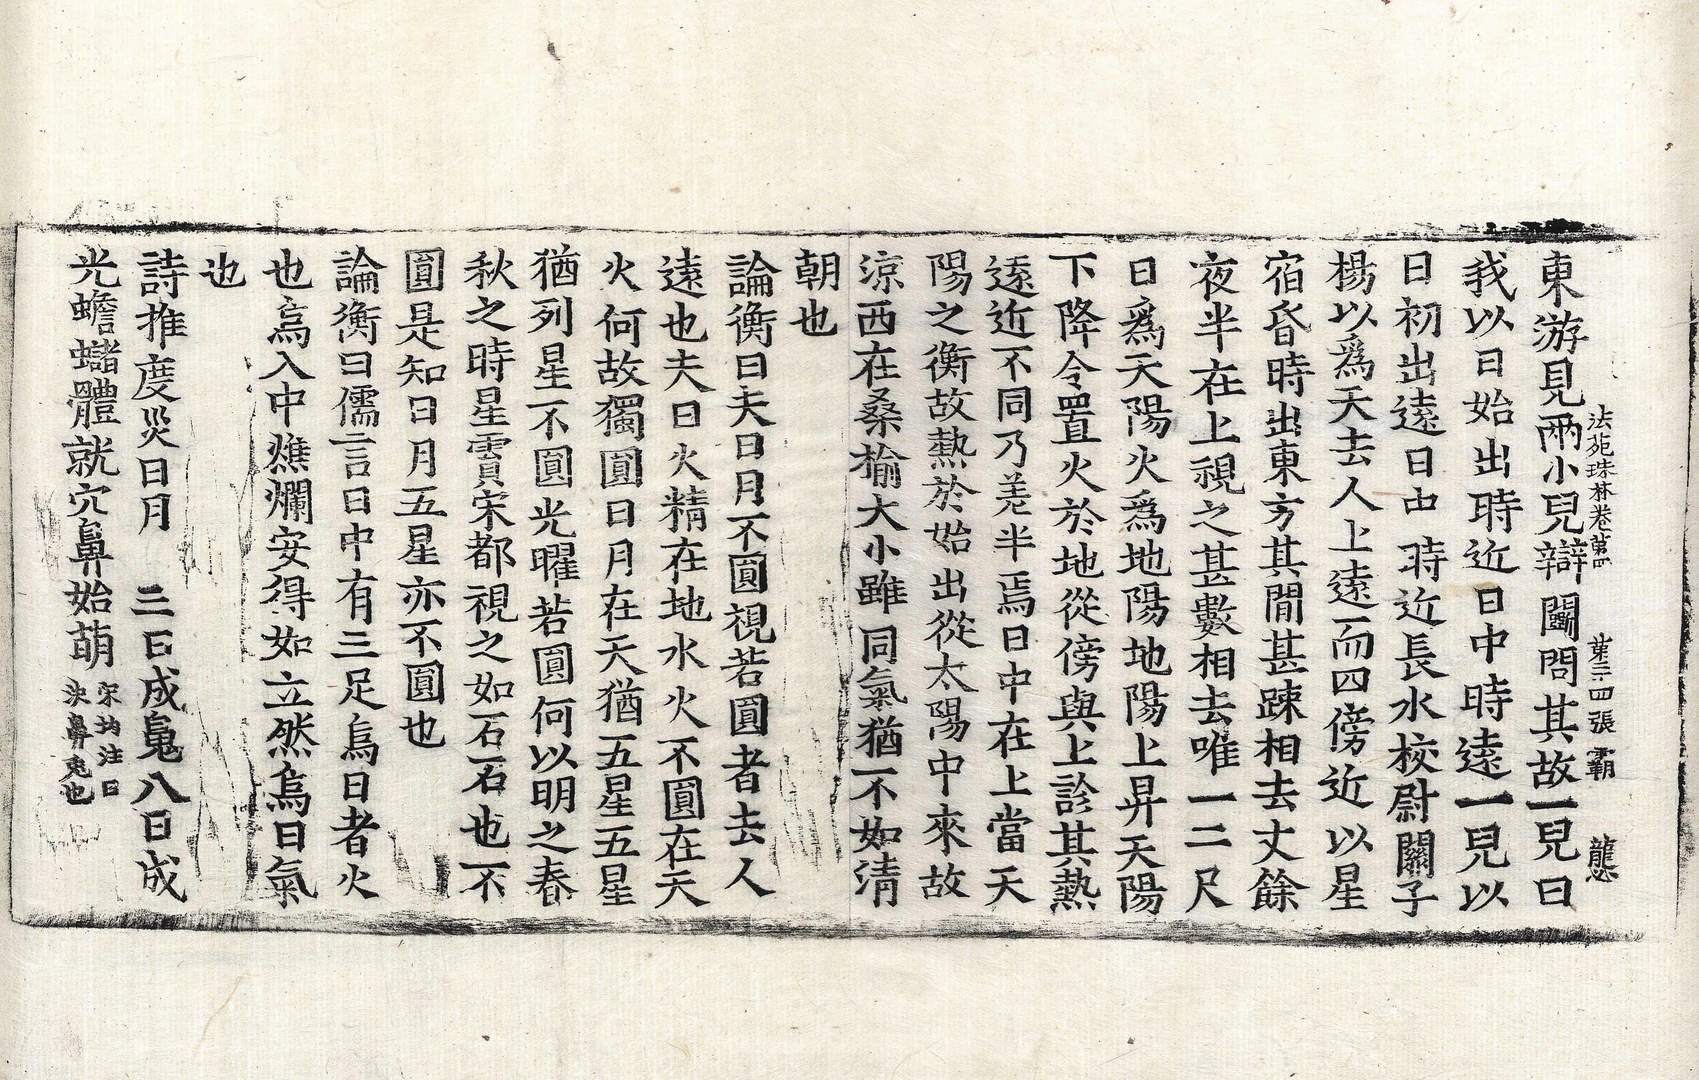 法苑珠林卷第四 第三四張 覇 龍愻
東游見兩小兒辯鬭問其故一兒曰
我以日始出時近日中時遠一兒以
日初出遠日中時近長水校尉關子
楊以爲天去人上遠而四傍近以星
宿昏時出東方其閒甚踈相去丈餘
夜半在上視之甚數相去唯一二尺
日爲天陽火爲地陽地陽上昇天陽
下降今置火於地從傍與上診其熱
遠近不同乃差半焉日中在上當天
陽之衡故熱於始出從太陽中來故
涼西在桑榆大小雖同氣猶不如清
朝也
論衡曰夫日月不圓視若圓者去人
遠也夫日火精在地水火不圓在天
火何故獨圓日月在天猶五星五星
猶列星不圓光曜若圓何以明之春
秋之時星霣宋都視之如石石也不
圓是知日月五星亦不圓也
論衡曰儒言日中有三足烏日者火
也烏入中燋爛安得如立然烏日氣
也
詩推度災日月 三日成鬼八日成
光蟾蠩體就穴鼻始萌 宋均注曰
決鼻兎也